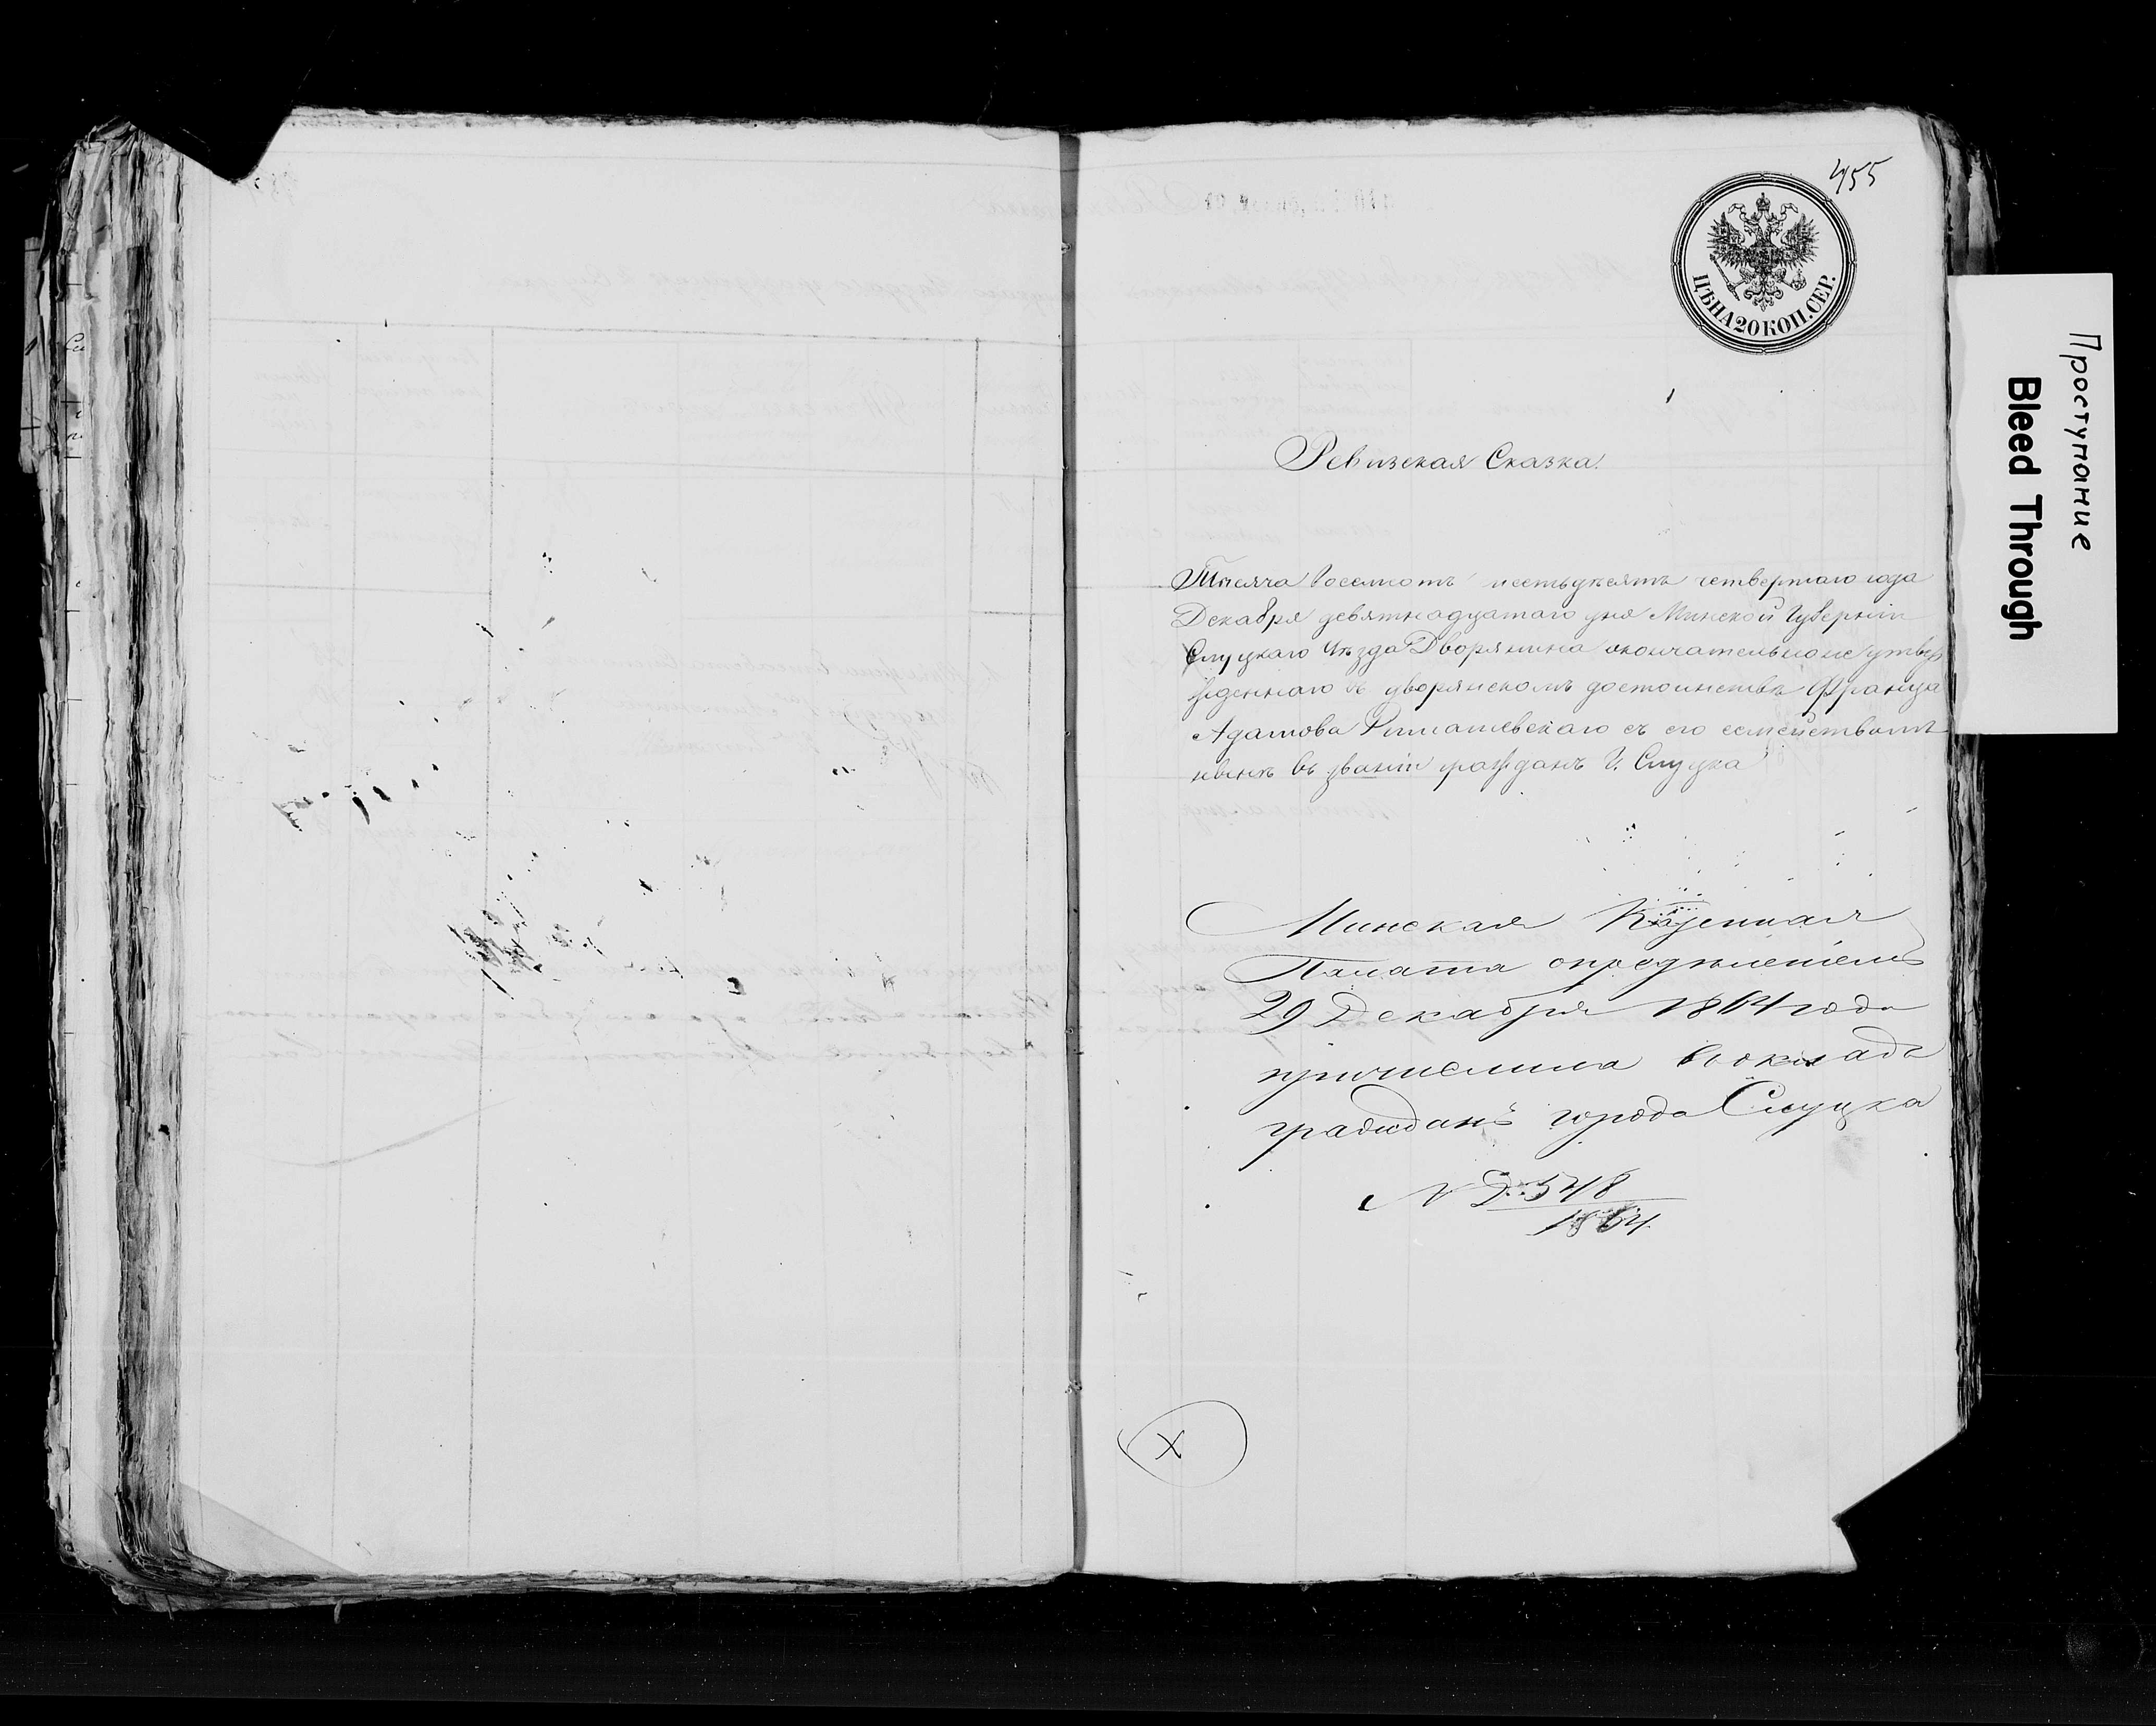 455
ЦѢНА 20 КОП. СЕР.
Ревизская Сказка.
Тысяча восемьсотъ шестьдесятъ четвертаго года
Декабря девятнадцатаго дня Минской Губерніи
Слуцкаго Уѣзда Дворянина окончательно не утвер
жденнаго въ дворянскомъ достоинствѣ Франца
Адамова Римашевскаго съ его семействомъ
нынѣ въ званіи гражданъ Г. Слуцка
Минская Казенная
Палата опредѣленіемъ
29 Декабря 1864 года
причислила въ окладъ
гражданъ города Слуцка
N Д. 548
1864
X
Проступание
Bleed Through